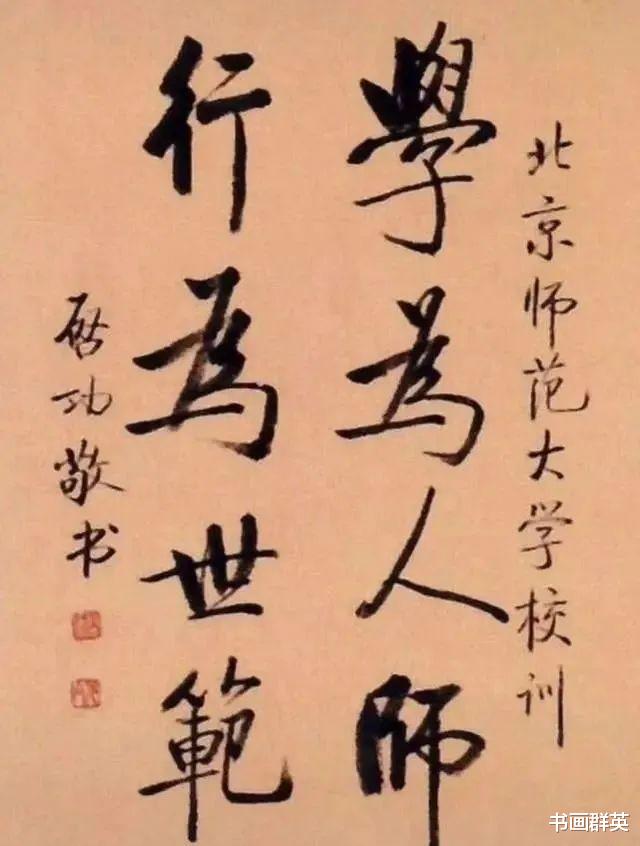 北京师范大学校训
學為人師
行為世範
启功敬书
书画群英